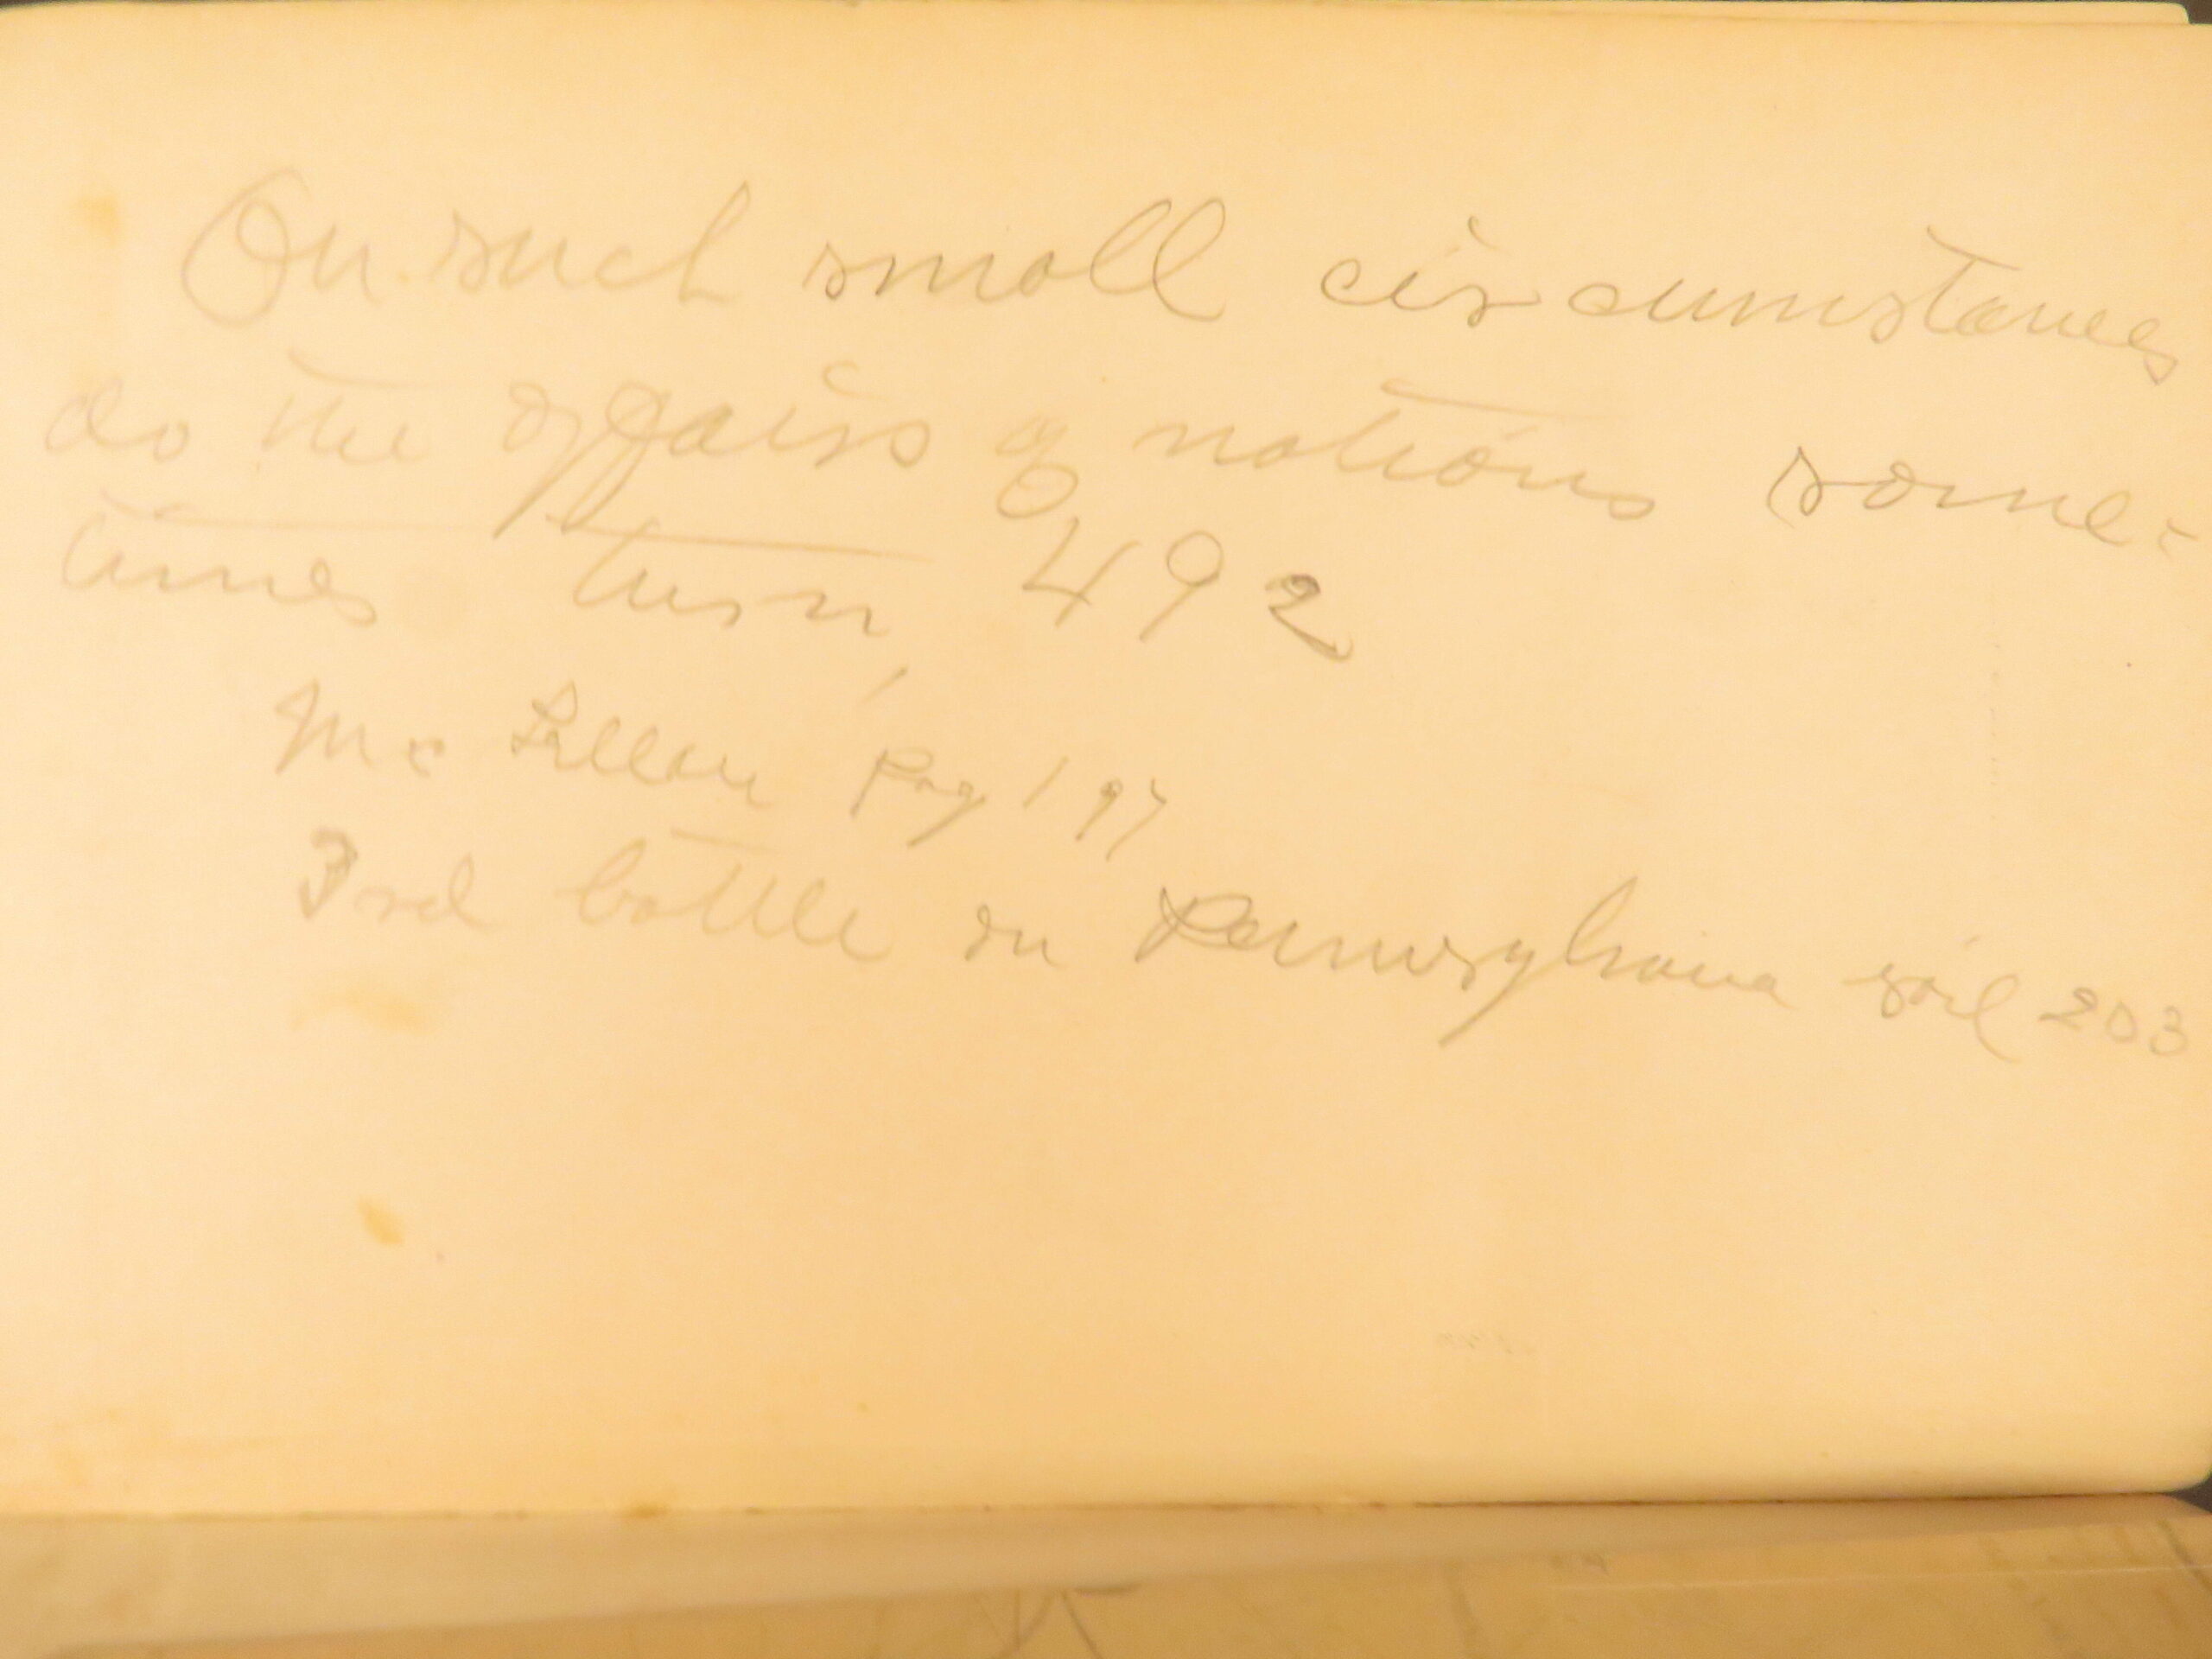 On such small circumstances
do the affairs of nations some-
times turn, 492
Mc Lellan Pag 197
3rd battle on Pennsylvania soil 203